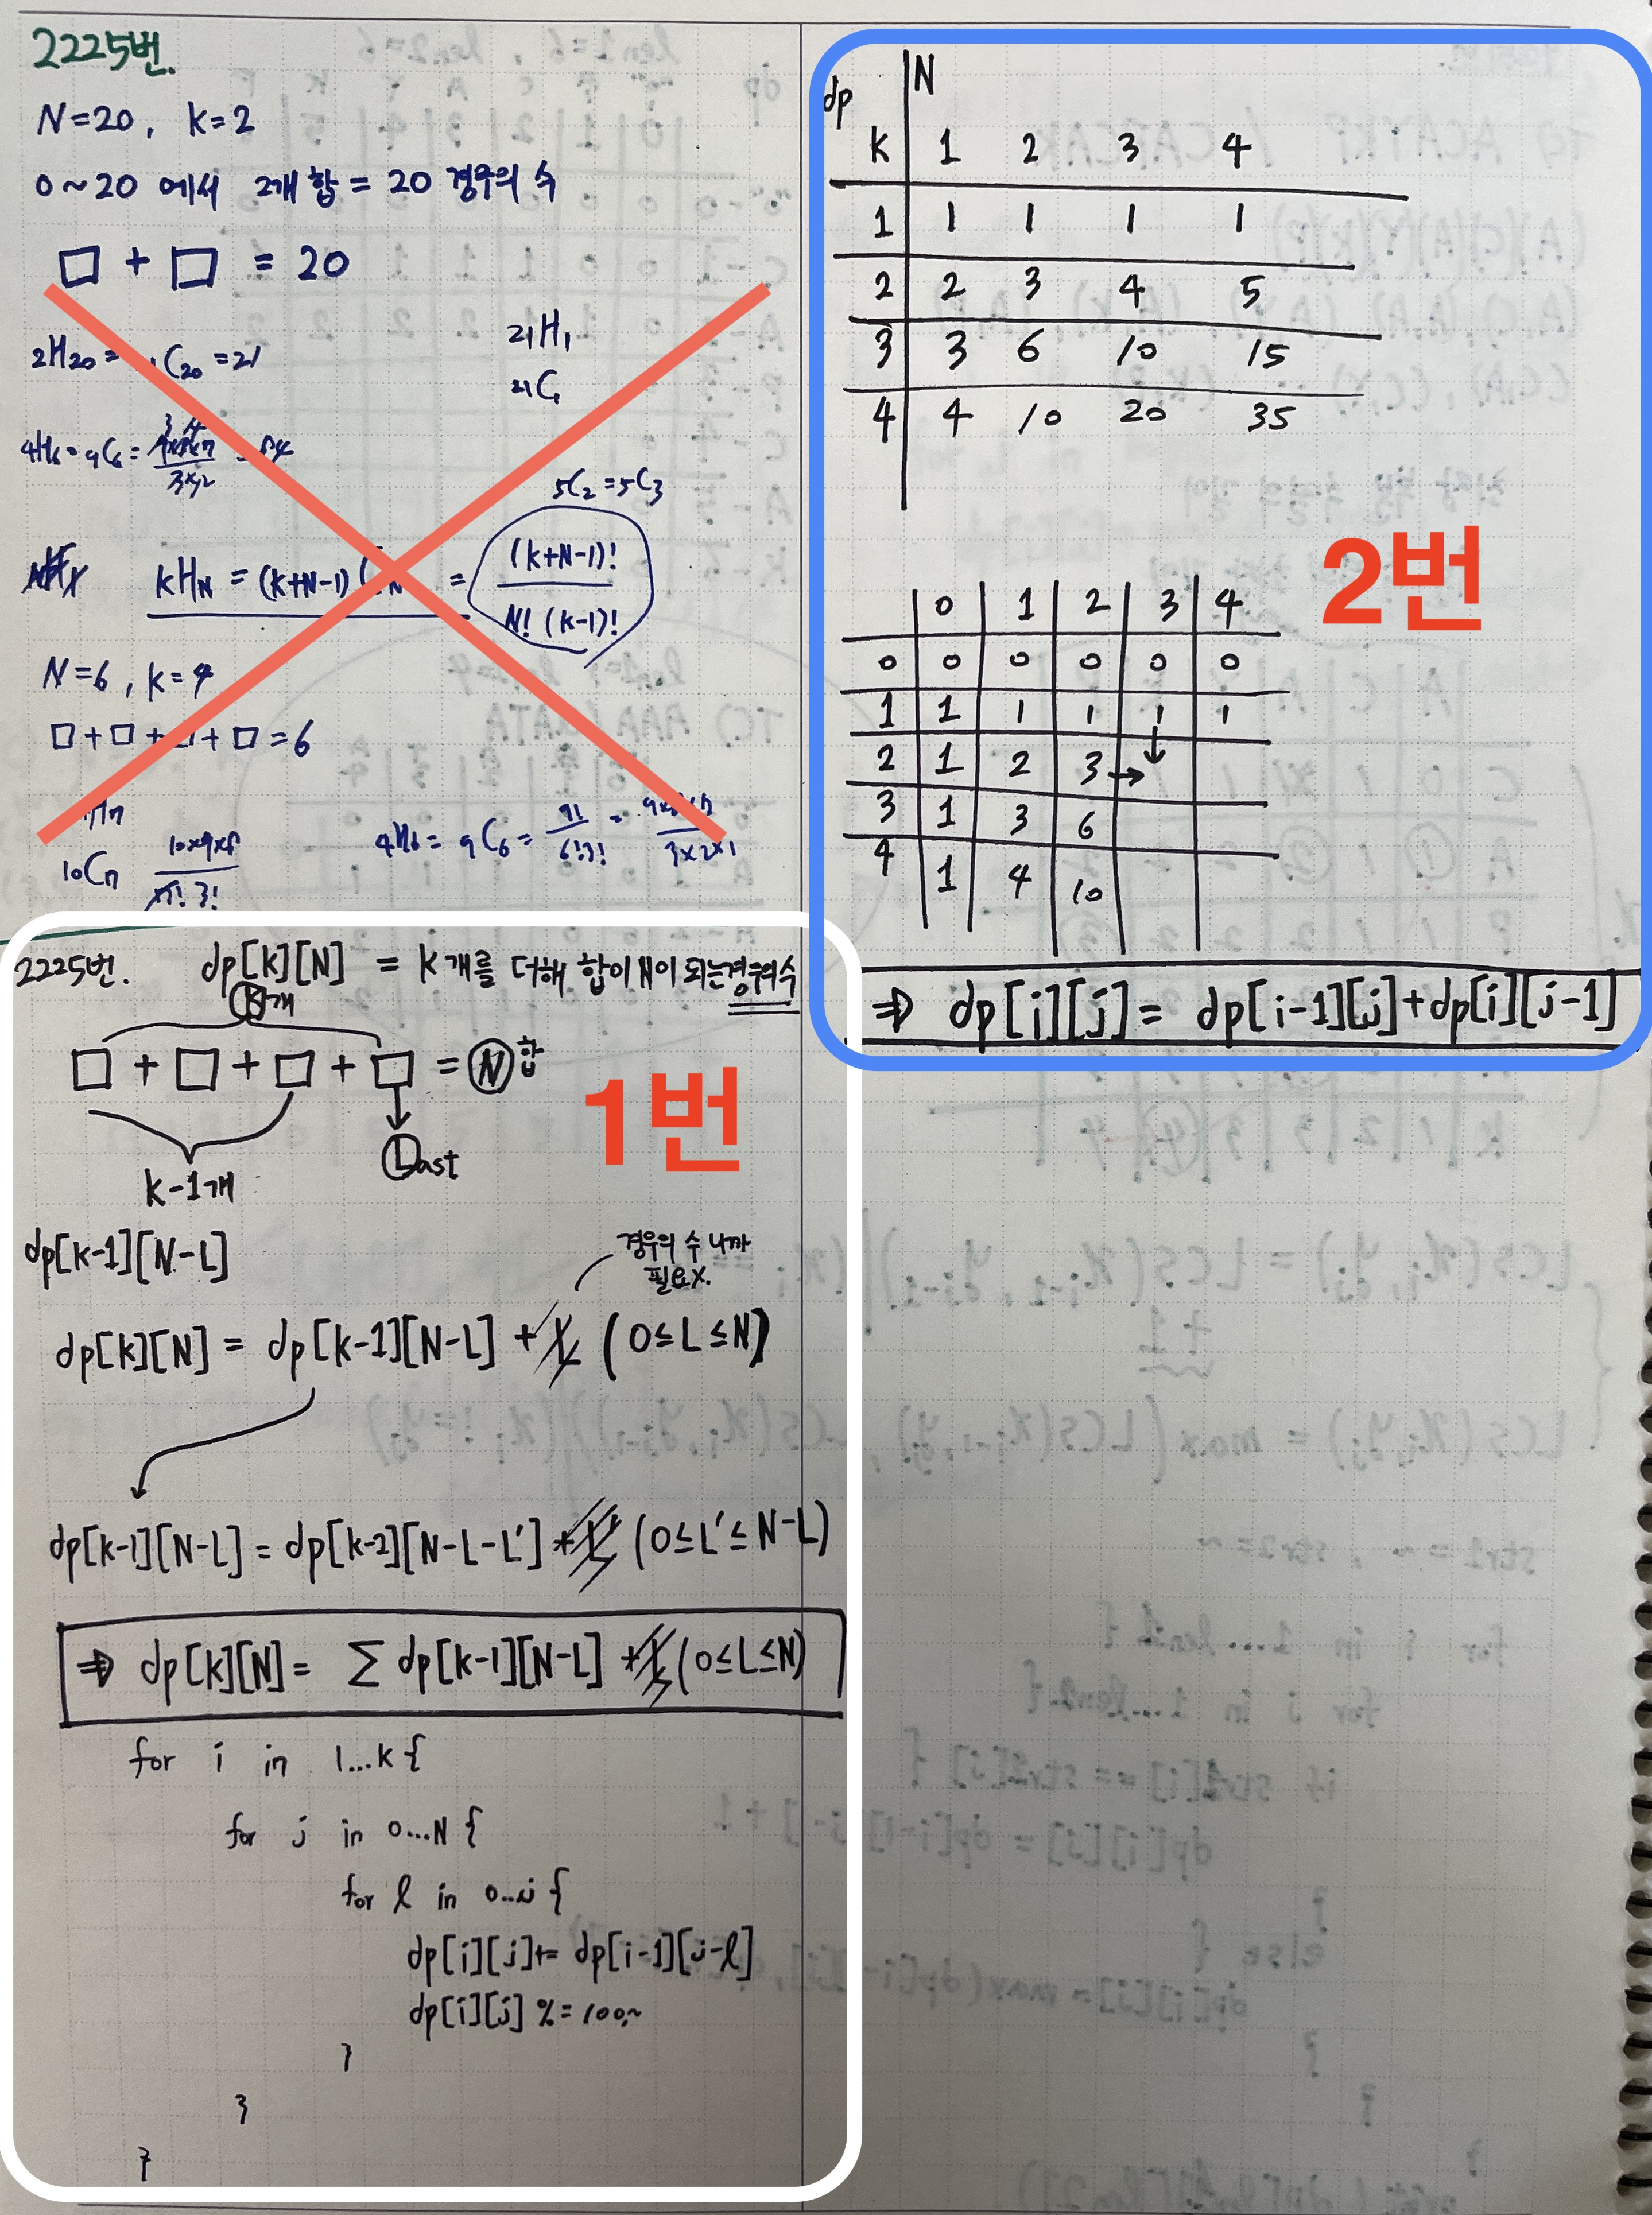 2225번.
N=20, k=2
0~20 에서 2개 합 = 20 경우의 수
□ + □ = 20
2H20 = C20 = 21
21H1
21C1
4H6 = 9C6 =
3×2
84
5C2 = 5C3
kHN = (k+N-1)CN = (k+N-1)! / N! (k-1)!
N=6, k=4
□+□+□+□=6
10C7 10×9×8 / 7! 3!
4H6 = 9C6 = 9! / 6!3! = 9×8×7 / 3×2×1
2225번. dp[k][N] = k개를 더해 합이 N이 되는 경우의 수
k개
□ + □ + □ + □ = N 합
1번
k-1개
Last
dp[k-1][N-L]
경우의 수 니까
필요X.
dp[k][N] = dp[k-1][N-L] + L (0≤L≤N)
dp[k-1][N-L] = dp[k-2][N-L-L'] + L' (0≤L'≤N-L)
⇒ dp[k][N] = ∑ dp[k-1][N-L] + L (0≤L≤N)
for i in 1...k {
for j in 0...N {
for l in 0...j {
dp[i][j] += dp[i-1][j-l]
dp[i][j] %= 100~
}
}
}
dp N
k 1 2 3 4
1 1 1 1 1
2 2 3 4 5
3 3 6 10 15
4 4 10 20 35
2번
0 1 2 3 4
0 0 0 0 0 0
1 1 1 1 1 1
2 1 2 3 →
3 1 3 6
4 1 4 10
⇒ dp[i][j] = dp[i-1][j] + dp[i][j-1]